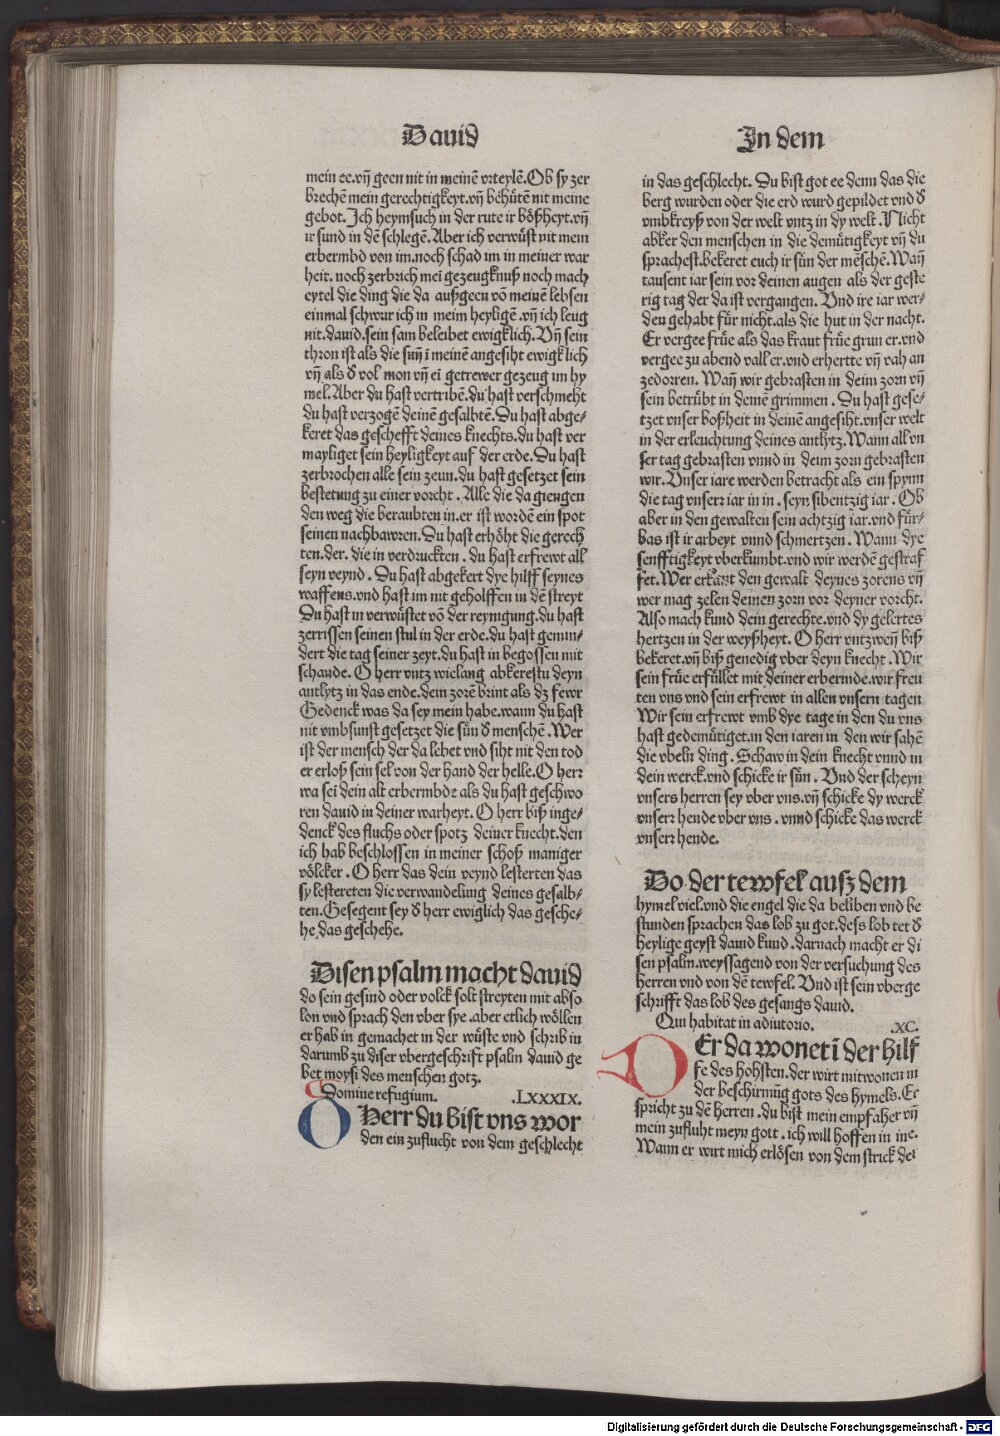 Dauid
mein ee.vñ geen nit in meinē vrteylē.Ob sy zer
brechē mein gerechtigkeyt.vñ behütē nit meine
gebot.Ich heymsuch in der rute ir boßheyt.vñ
ir sund in dē schlegē.Aber ich verwüst nit mein
erbermbd von im.noch schad im in meiner war
heit.noch zerbrich mei gezeugknuß noch mach
eytel die ding die da außgeen võ meinē lebsen
einmal schwur ich in meim heyligē.vñ ich leug
nit.dauid.sein sam beleibet ewigklich.Vñ sein
thron ist als die suñ ī meinē angesiht ewigklich
vñ als d vol mon vñ eī getrewer gezeug im hy
mel.Aber du hast vertribē.du hast verschmeht
du hast verzogē deinē gesalbtē.Du hast abge-
keret das geschefft deines knechts.du hast ver
mayliget sein heyligkeyt auf der erde.Du hast
zerbrochen alle sein zeun.du hast gesetzet sein
bestetung zu einer vorcht.Alle die da giengen
den weg die beraubten in.er ist wordē ein spot
seinen nachbawren.Du hast erhöht die gerech
ten.der.die in verdruckten.du hast erfrewt all
seyn veynd.Du hast abgekert dye hilff seynes
waffens.vnd hast im nit geholffen in dē streyt
Du hast in verwüstet võ der reynigung.du hast
zerrissen seinen stul in der erde.du hast gemin-
dert die tag seiner zeyt.du hast in begossen mit
schande.O herr vntz wielang abkerestu deyn
antlytz in das ende.dein zorē brint als dz fewr
Gedenck was da sey mein habe.wann du hast
nit vmbsunst gesetzet die sün d menschē.Wer
ist der mensch der da lebet vnd siht nit den tod
er erloß sein sel von der hand der helle.O herr
wa sei dein alt erbermbde als du hast geschwo
ren dauid in deiner warheyt.O herr biß inge-
denck des fluchs oder spotz deiner knecht.den
ich hab beschlossen in meiner schoß maniger
völcker.O herr das dein veynd lesterten das
sy lestereten die verwandelung deines gesalb-
ten.Gesegent sey d herr ewiglich das gesche-
he.das geschehe.
Disen psalm macht dauid
do sein gesind oder volck solt streyten mit abso
lon vnd sprach den vber sye.aber etlich wöllen
er hab in gemachet in der wüste vnd schrib in
darumb zu diser vbergeschrift psalm dauid ge
bet moysi des menschen gotz.
Domine refugium. .LXXXIX.
O Herr du bist vns wor
den ein zuflucht von dem geschlecht
In dem
in das geschlecht.Du bist got ee denn das die
berg wurden oder die erd wurd gepildet vnd d
vmbkreyß von der welt vntz in dy welt.Nicht
abker den menschen in die demütigkeyt vñ du
sprachest.bekeret euch ir sün der mēschē.Wañ
tausent iar sein vor deinen augen als der geste
rig tag der da ist vergangen.Vnd ire iar wer-
den gehabt für nicht.als die hut in der nacht.
Er vergee früe als das kraut früe grun er.vnd
vergee zu abend vall er.vnd erhertte vñ vah an
zedorren.Wañ wir gebrasten in deim zorn vñ
sein betrübt in deinē grimmen.Du hast gese-
tzet vnser boßheit in deinē angesiht.vnser welt
in der erleuchtung deines antlytz.Wann all vn
ser tag gebrasten vnnd in deim zorn gebrasten
wir.Vnser iare werden betracht als ein spynn
die tag vnserr iar in in.seyn sibentzig iar.Ob
aber in den gewalten sein achtzig iar.vnd für-
bas ist ir arbeyt vnnd schmertzen.Wann dye
senfftigkeyt vberkumbt.vnd wir werdē gestraf
fet.Wer erkant den gewalt deynes zorens vñ
wer mag zelen deinen zorn vor deyner vorcht.
Also mach kund dein gerechte.vnd dy gelertes
hertzen in der weyßheyt.O herr vntzweñ biß
bekeret.vñ biß genedig vber deyn knecht.Wir
sein früe erfüllet mit deiner erbermde.wir freu
ten vns vnd sein erfrewt in allen vnsern tagen
Wir sein erfrewt vmb dye tage in den du vns
hast gedemütiget.in den iaren in den wir sahē
die vbeln ding.Schaw in dein knecht vnnd in
dein werck.vnd schicke ir sün.Vnd der scheyn
vnsers herren sey vber vns.vñ schicke dy werck
vnserr hende vber vns.vnnd schicke das werck
vnserr hende.
Do der tewfel ausz dem
hymel viel.vnd die engel die da beliben vnd be
stunden sprachen das lob zu got.dess lob tet d
heylige geyst dauid kund.darnach macht er di
sen psalm.weyssagend von der versuchung des
herren vnd von dē tewfel.Vnd ist sein vberge
schrifft das lob des gesangs dauid.
Qui habitat in adiutorio. .XC.
Der da wonet ī der hilf
fe des hohsten.der wirt mitwonen in
der beschirmūg gots des hymels.Er
spricht zu dē herren.du bist mein empfaher vñ
mein zufluht meyn gott.ich will hoffen in ine.
Wann er wirt mich erlösen von dem strick dei
Digitalisierung gefördert durch die Deutsche Forschungsgemeinschaft - DFG